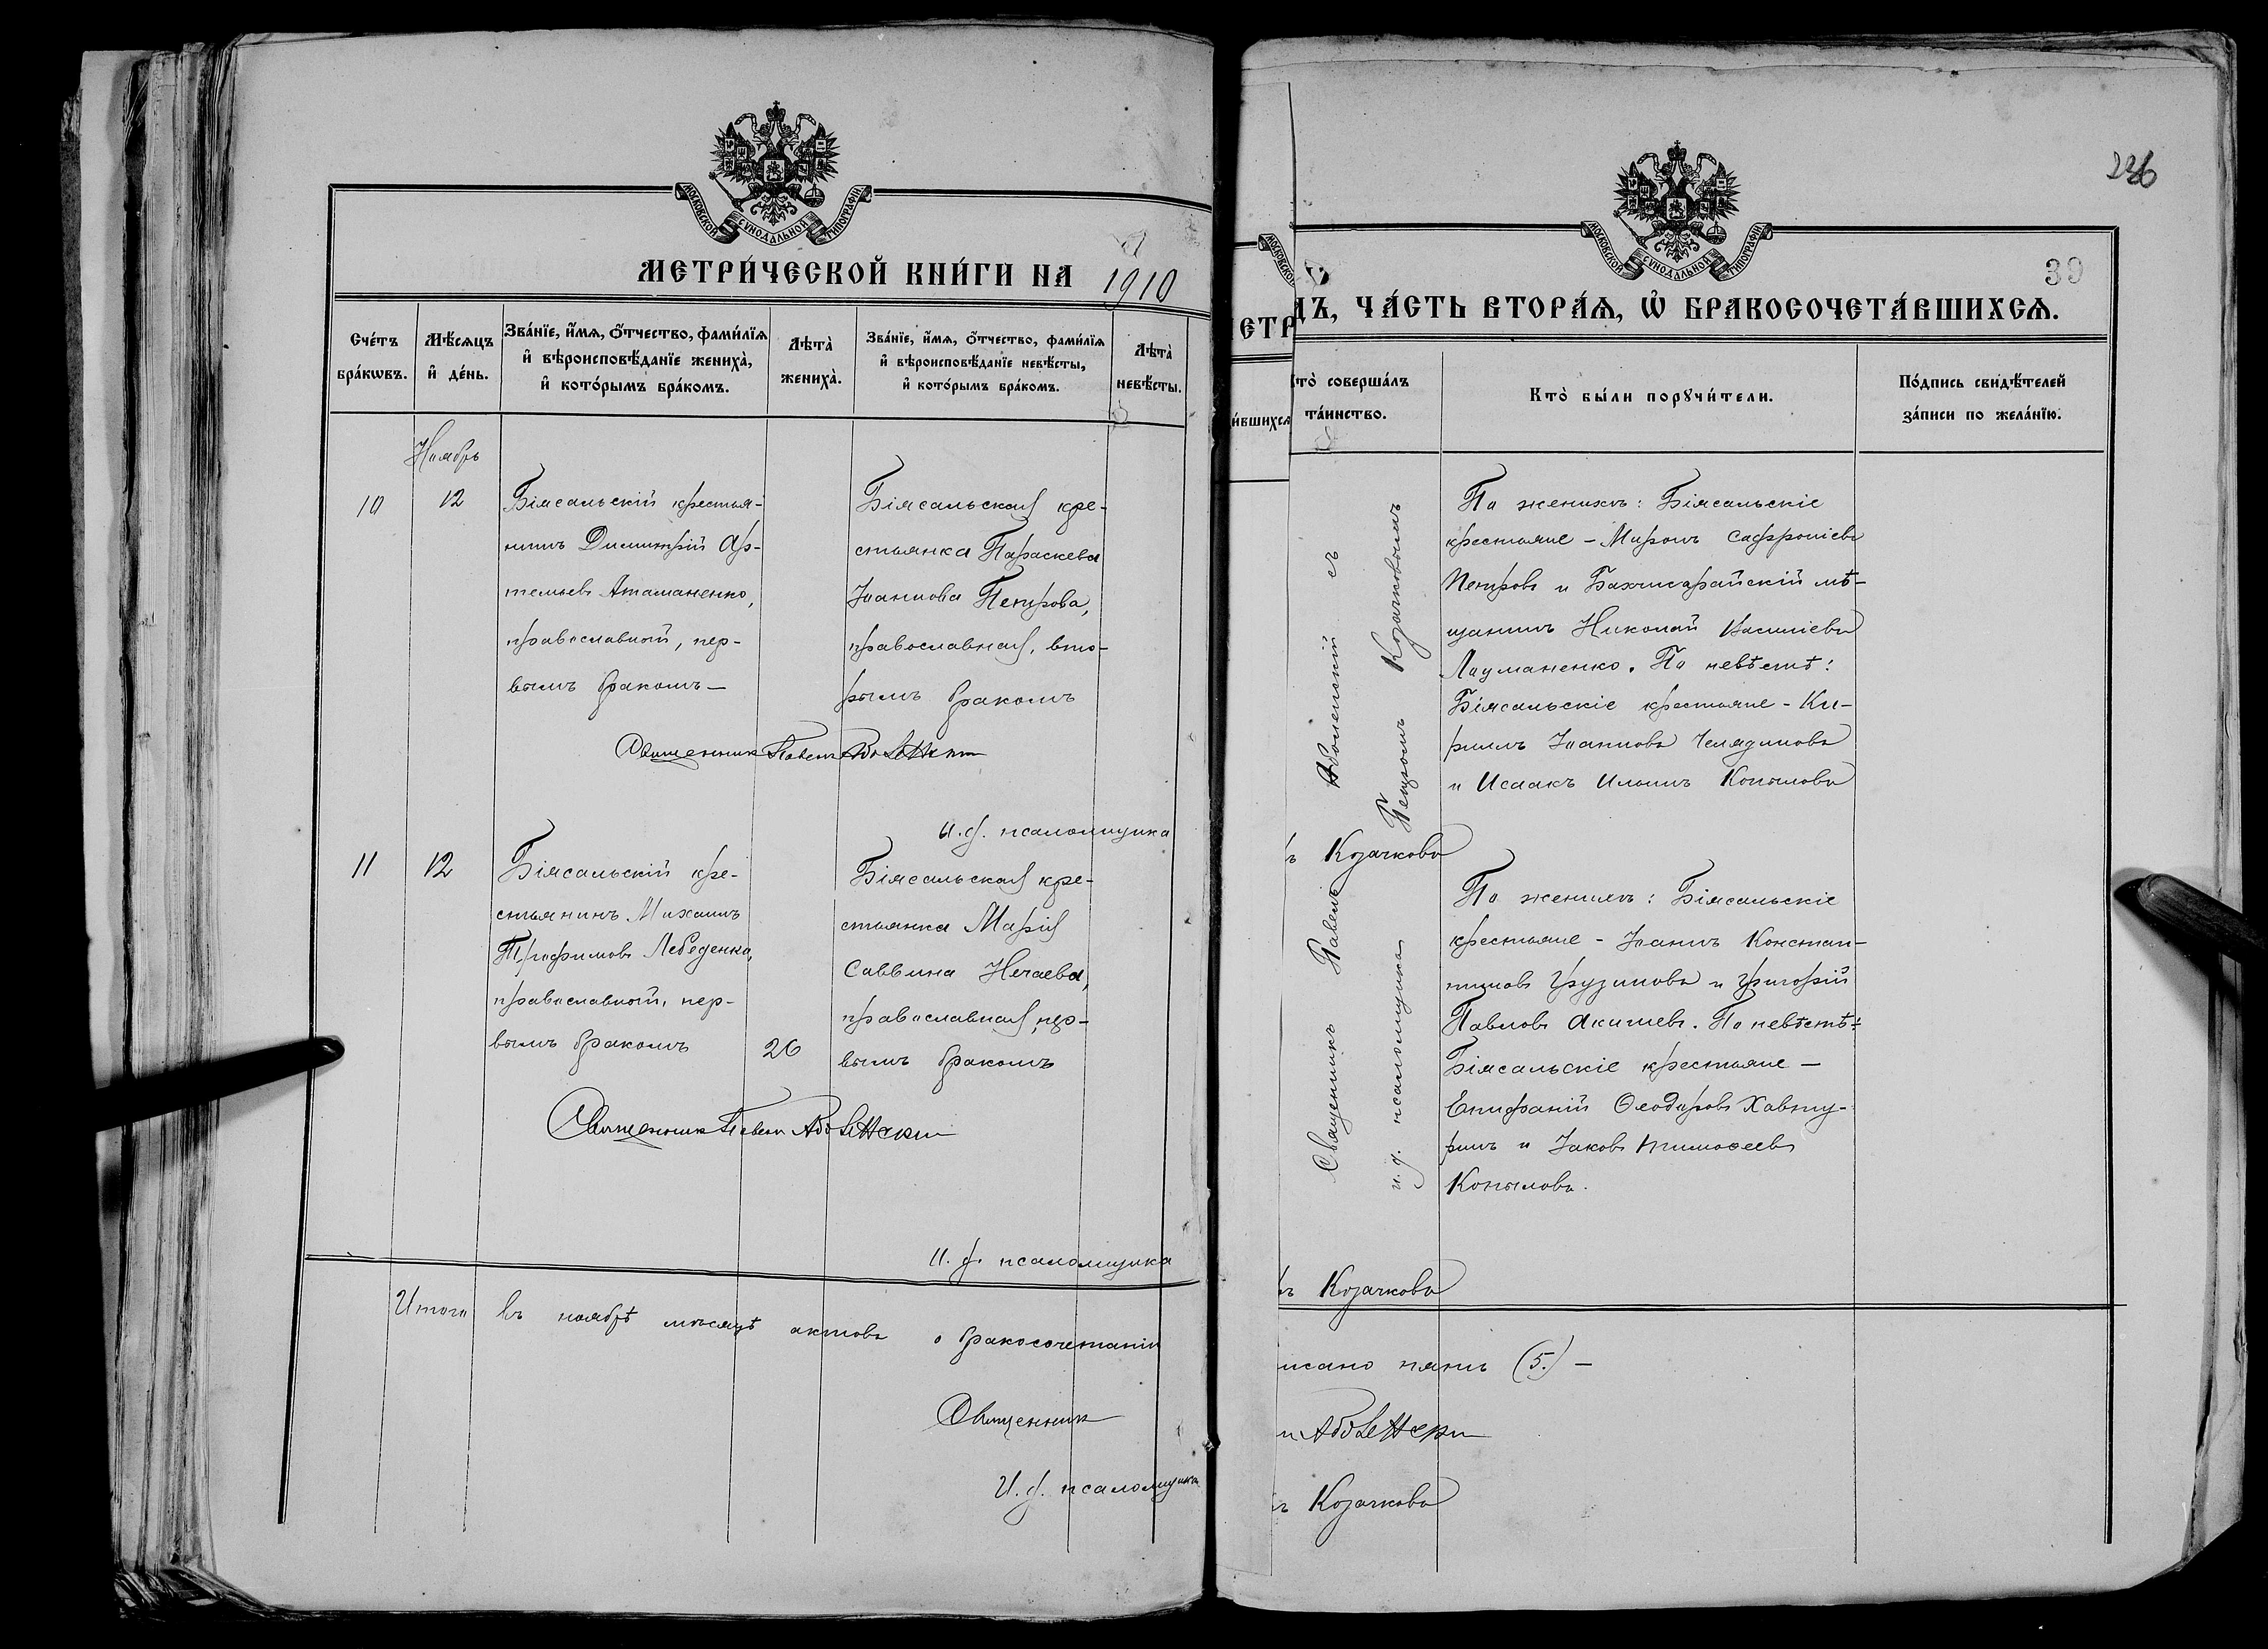 МОСКОВСКОЙ СѴНОДАЛЬНОЙ ТИПОГРАФІИ
МЕТРИ́ЧЕСКОЙ КНИ́ГИ НА 1910
Сче́тъ бра́кѡвъ.
Мѣ́сяцъ и҆ де́нь.
Зва́нїе, и҆́мѧ, ѻ҆́тчество, фами́лїѧ
и҆ вѣроисповѣ́данїе жениха̀,
и҆ кото́рымъ бра́комъ.
Лѣта̀
жениха̀.
Зва́нїе, и҆́мѧ, ѻ҆́тчество, фами́лїѧ
и҆ вѣроисповѣ́данїе невѣ́сты,
и҆ кото́рымъ бра́комъ.
Лѣта̀
невѣ́сты.
Ноябрь
10
12
Біясальскій крестья-
нинъ Димитрій Ар-
темьевъ Атаманенко,
православный, пер-
вымъ бракомъ —
Біясальская кре-
стьянка Параскева
Іоаннова Петрова,
православная, вто-
рымъ бракомъ
Священник Павел
И. д. псаломщика
11
12
Біясальскій кре-
стьянинъ Михаилъ
Трофимовъ Лебеденко,
православный, пер-
вымъ бракомъ
26
Біясальская кре-
стьянка Марія
Саввина Нечаева,
православная, пер-
вымъ бракомъ
Священник Павел
И. д. псаломщика
Итого въ ноябрѣ мѣсяцѣ актовъ о бракосочетаніи
Священник
И. д. псаломщика
236
39
МОСКОВСКОЙ СѴНОДАЛЬНОЙ ТИПОГРАФІИ
ЕТР
ДЪ, ЧА́СТЬ ВТОРА́Ѧ, Ѡ҆ БРАКОСОЧЕТА́ВШИХСѦ.
и́вшихсѧ
кто̀ соверша́лъ
та́инство.
Кто̀ бы́ли порꙋчи́тели.
По́дпись свидѣ́телей
за́писи по жела́нїю.
Священникъ Павелъ съ
и. д. псаломщика Петромъ Козачковымъ
По женихѣ: Біясальскіе
крестьяне – Миронъ Сафроніевъ
Петровъ и Бахчисарайскій мѣ-
щанинъ Николай Василіевъ
Лауманенко. По невѣстѣ:
Біясальскіе крестьяне – Ки-
риллъ Іоанновъ Челядиновъ
и Исаакъ Ильинъ Копыловъ
ъ Козачковъ
По женихѣ: Біясальскіе
крестьяне – Іоаннъ Констан-
тиновъ Грузиновъ и Григорій
Павловъ Акишевъ. По невѣстѣ:
Біясальскіе крестьяне —
Епифаній Ѳеодоровъ Хавту-
ринъ и Іаковъ Тимоѳеевъ
Копыловъ.
ъ Козачковъ
исано пять (5.) —
ъ Козачковъ